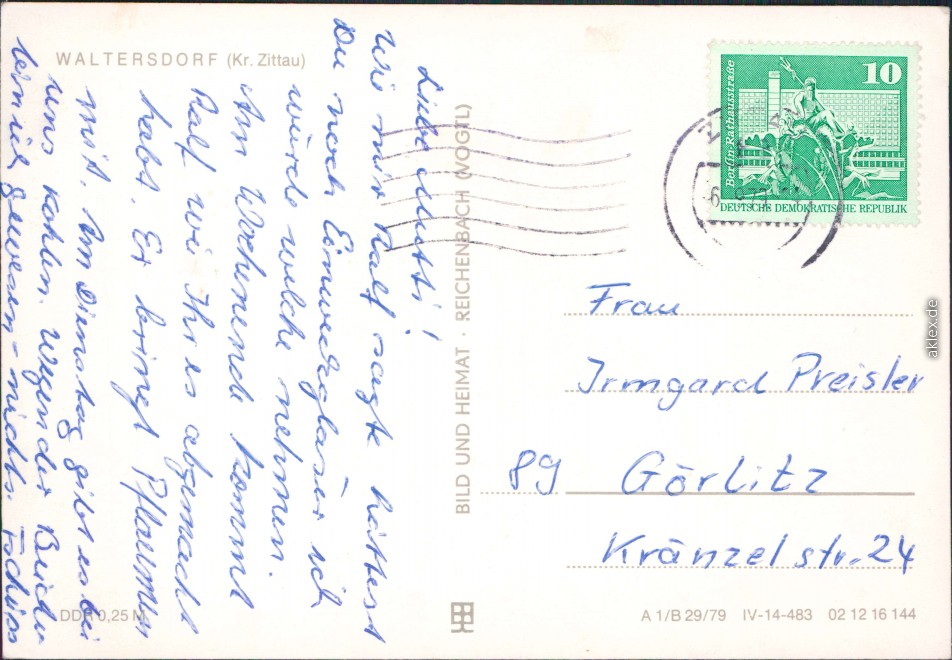 WALTERSDORF (Kr. Zittau)
Liebe Mutti!
Wie mir Ralf sagte hättest
Du noch Einweckgläser ich
würde welche nehmen.
Am Wochenende kommt
Ralf wie Ihr es abgemacht
habt. Er bringt Pflaumen
mit. Am Dienstag gibt es bei
uns Kohlen. Wegen der
bin ich gewesen - nichts. Tschüss
BILD UND HEIMAT · REICHENBACH (VOGTL)
10
Berlin-Rathausstraße
DEUTSCHE DEMOKRATISCHE REPUBLIK
Frau
Irmgard Preisler
89 Görlitz
Kränzelstr. 24
DDR 0,25 M
A 1/B 29/79 IV-14-483 02 12 16 144
aklex.de